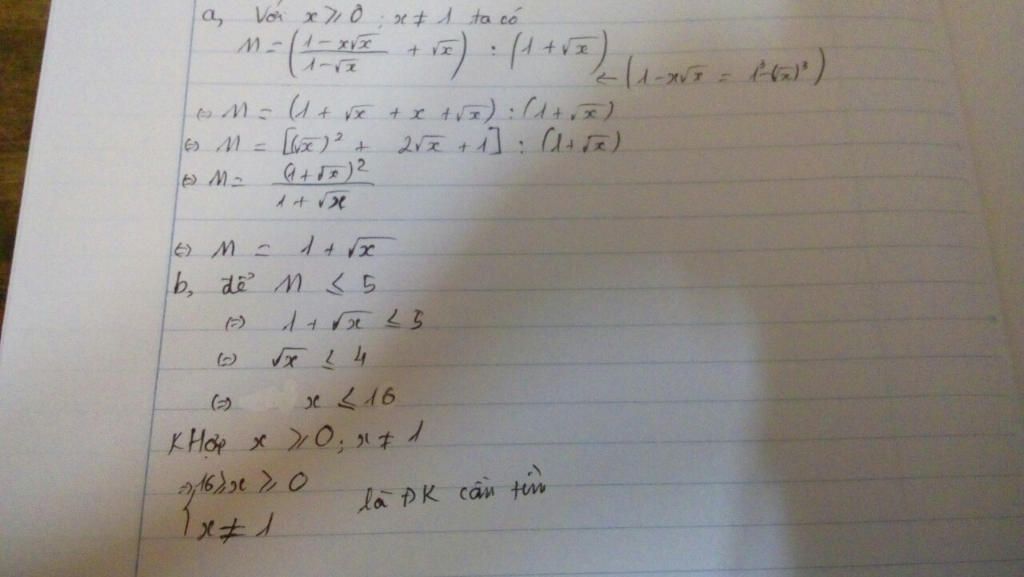 a, Với x ≥ 0 ; x ≠ 1 ta có
M = ( (1 - x√x)/(1 - √x) + √x ) : (1 + √x)
← (1 - x√x = 1³ - (√x)³)
⇔ M = (1 + √x + x + √x) : (1 + √x)
⇔ M = [(√x)² + 2√x + 1] : (1 + √x)
⇔ M = (1 + √x)² / (1 + √x)
⇔ M = 1 + √x
b, để M ≤ 5
⇔ 1 + √x ≤ 5
⇔ √x ≤ 4
⇔ x ≤ 16
K Hợp x ≥ 0 ; x ≠ 1
⇒ { 16 ≥ x ≥ 0
x ≠ 1 là ĐK cần tìm